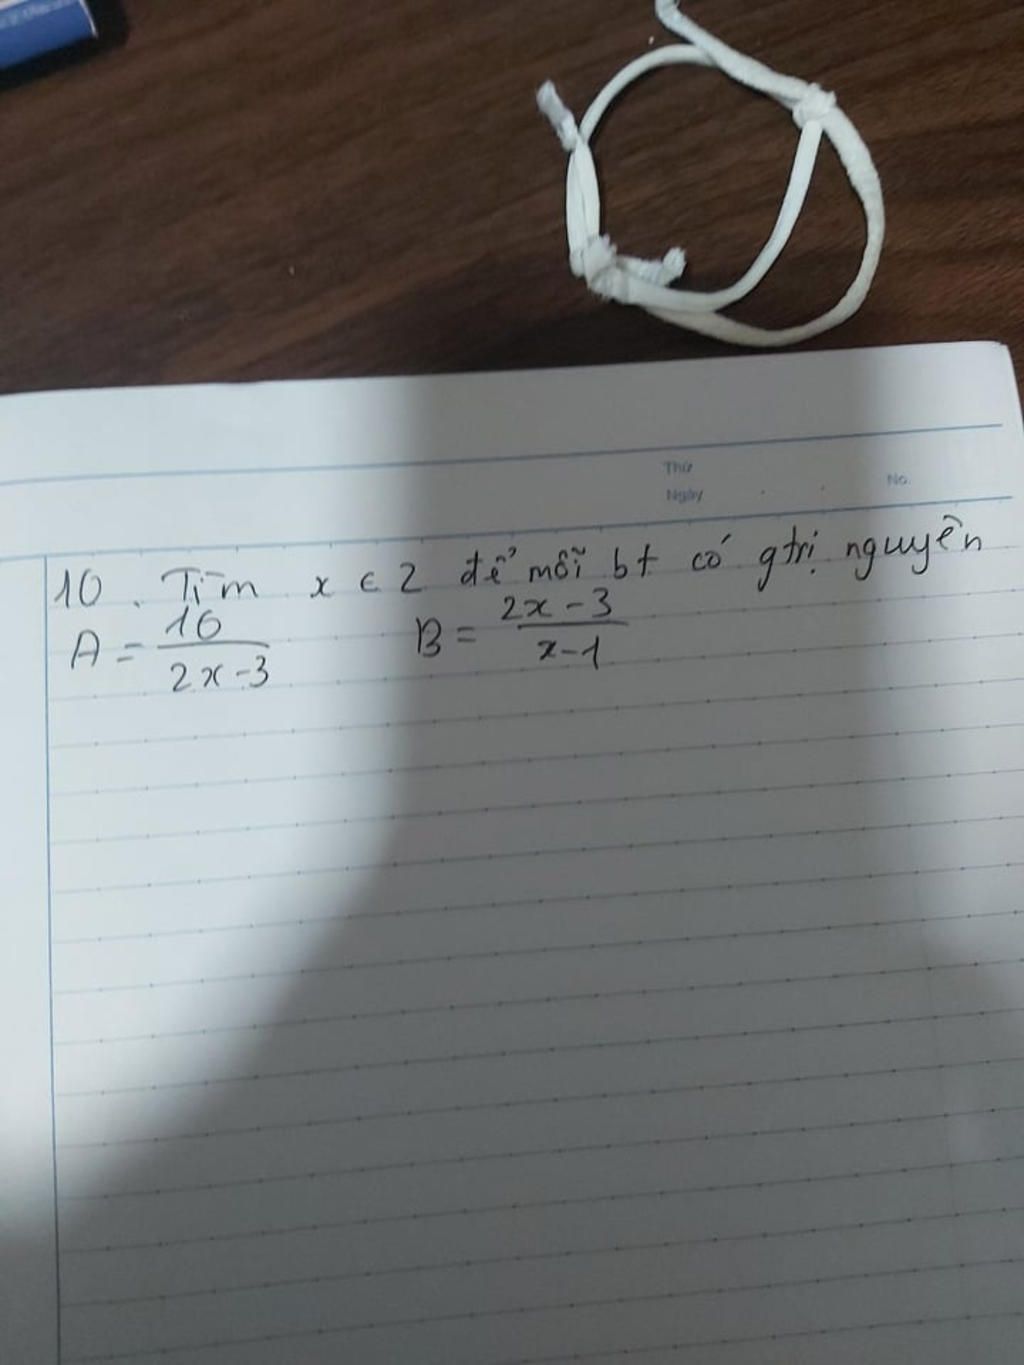 Thứ
Ngày
No.
10. Tìm x ∈ Z để mỗi bt có gtrị nguyên
A = 10 / 2x - 3 B = 2x - 3 / x - 1